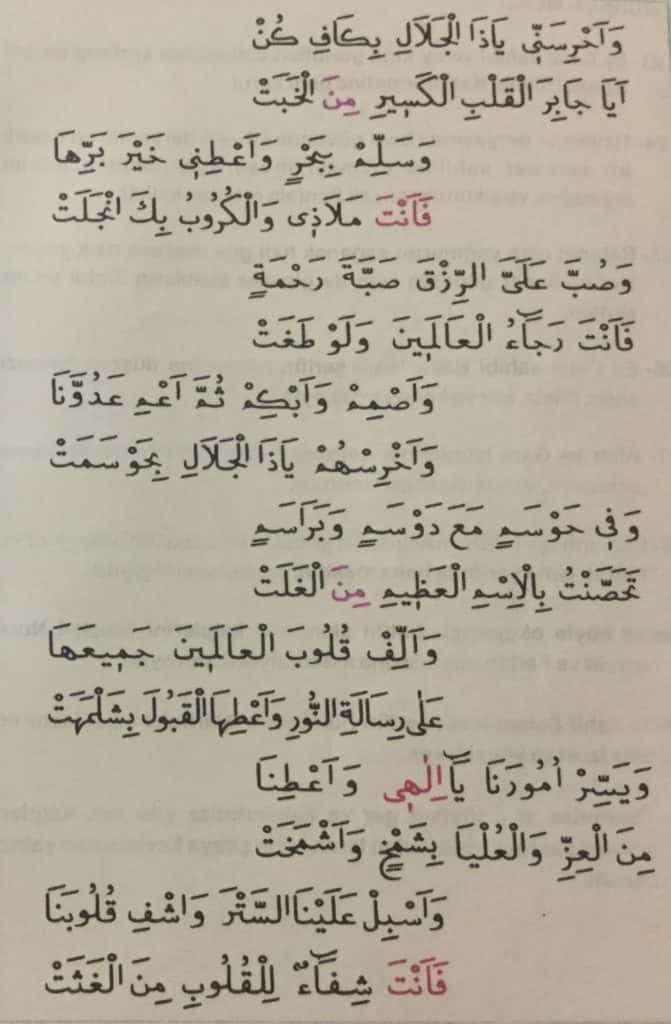 وَاَحْرِسَنّٖي يَاذَا الْجَلَالِ بِكَافِ كُنْ
اَيَا جَابِرِ الْقَلْبِ الْكَسٖيرِ مِنَ الْخَبَتْ
وَسَلِّمْ بِبَحْرٍ وَاَعْطِنٖي خَيْرَ بَرِّهَا
فَاَنْتَ مَلَاذٖى وَالْكُرُوبُ بِكَ انْجَلَتْ
وَصُبَّ عَلَىَّ الرِّزْقَ صَبَّةَ رَحْمَةٍ
فَاَنْتَ رَجَٓاءُ الْعَالَمٖينَ وَلَوْ طَغَتْ
وَاَصْمِمْ وَاَبْكِمْ ثُمَّ اَعْمِ عَدُوَّنَا
وَاَخْرِسْهُمْ يَاذَا الْجَلَالِ بِحَوْسَمَتْ
وَفٖي حَوْسَمٍ مَعَ دَوْسَمٍ وَبَرَاسَمٍ
تَحَصَّنْتُ بِالْاِسْمِ الْعَظٖيمِ مِنَ الْغَلَتْ
وَاَلِّفْ قُلُوبَ الْعَالَمٖينَ جَمٖيعَهَا
عَلٰى رِسَالَةِ النُّورِ وَاَعْطِهَا الْقَبُولَ بِشَلْمَهَتْ
وَيَسِّرْ اُمُورَنَا يَٓا اِلٰهٖى وَاَعْطِنَا
مِنَ الْعِزِّ وَالْعُلْيَا بِشَمْخٍ وَاَشْمَخَتْ
وَاَسْبِلْ عَلَيْنَا السَّتْرَ وَاشْفِ قُلُوبَنَا
فَاَنْتَ شِفَٓاءٌ لِلْقُلُوبِ مِنَ الْغَثَتْ